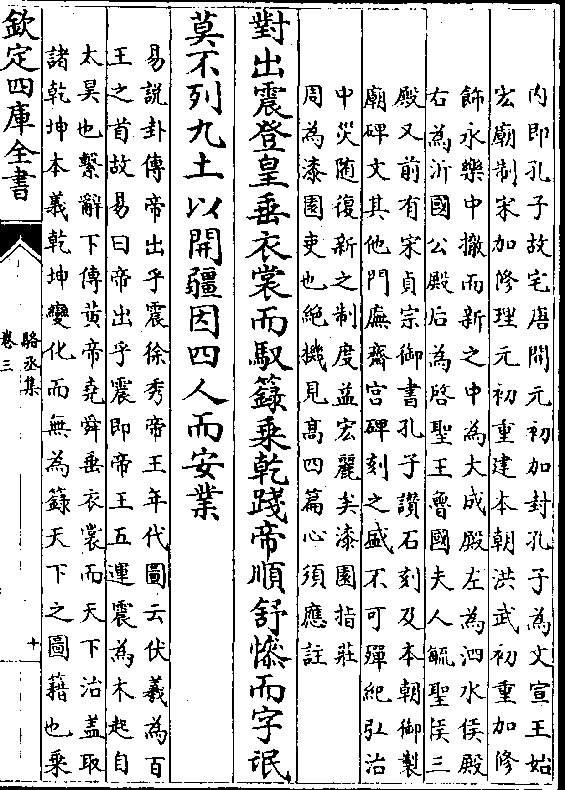 内即孔子故宅唐開元初加封孔子為文宣王始
宏廟制宋加修理元初重建本朝洪武初重加修
飾永樂中撤而新之中為大成殿左為泗水侯殿
右為沂國公殿后為啓聖王魯國夫人毓聖侯三
殿又前有宋貞宗御書孔子讚石刻及本朝御製
廟碑文其他門廡齋宫碑刻之盛不可殫紀弘治
中災随復新之制度益宏麗矣漆園指莊
周為漆園吏也絶機見髙四篇心須應註
對出震登皇垂衣裳而馭籙乘乾踐帝順舒慘而字氓
莫不列九土以開疆因四人而安業
易説卦傳帝出乎震徐秀帝王年代圖云伏羲為百
王之首故易曰帝出乎震即帝王五運震為木起自
太昊也繫辭下傳黄帝堯舜垂衣裳而天下治盖取
諸乾坤本義乾坤變化而無為籙天下之圖籍也乘
欽定四庫全書
駱丞集
卷三
十